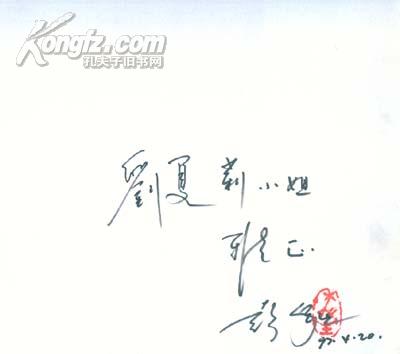 Kongfz.com
孔夫子旧书网
劉夏莉小姐
雅正
97.4.20.